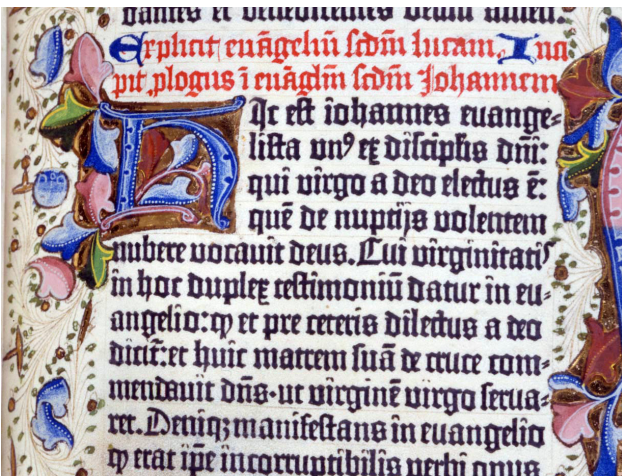 dantes et benedicentes deum amen.
Explicit euãgeliũ scdm̃ lucam. Inci
pit ꝓlogus ĩ euãgliũ scdm̃ Johannem
Hic est iohannes euange⸗
lista unꝰ ex discipl̃is dñi:
qui virgo a deo electus ẽ:
quẽ de nuptijs volentem
nubere vocavit deus. Cui virginitatꝭ
in hoc duplex testimoniũ datur in eu⸗
angelio: ꝙ et pre ceteris dilectus a deo
dicit̃: et huic matrem suã de cruce com⸗
mendavit dñs. ut virginẽ virgo serva⸗
ret. Deniqꝫ manifestans in euangelio
ꝙ erat ip̃e incorruptibilis verbi opus